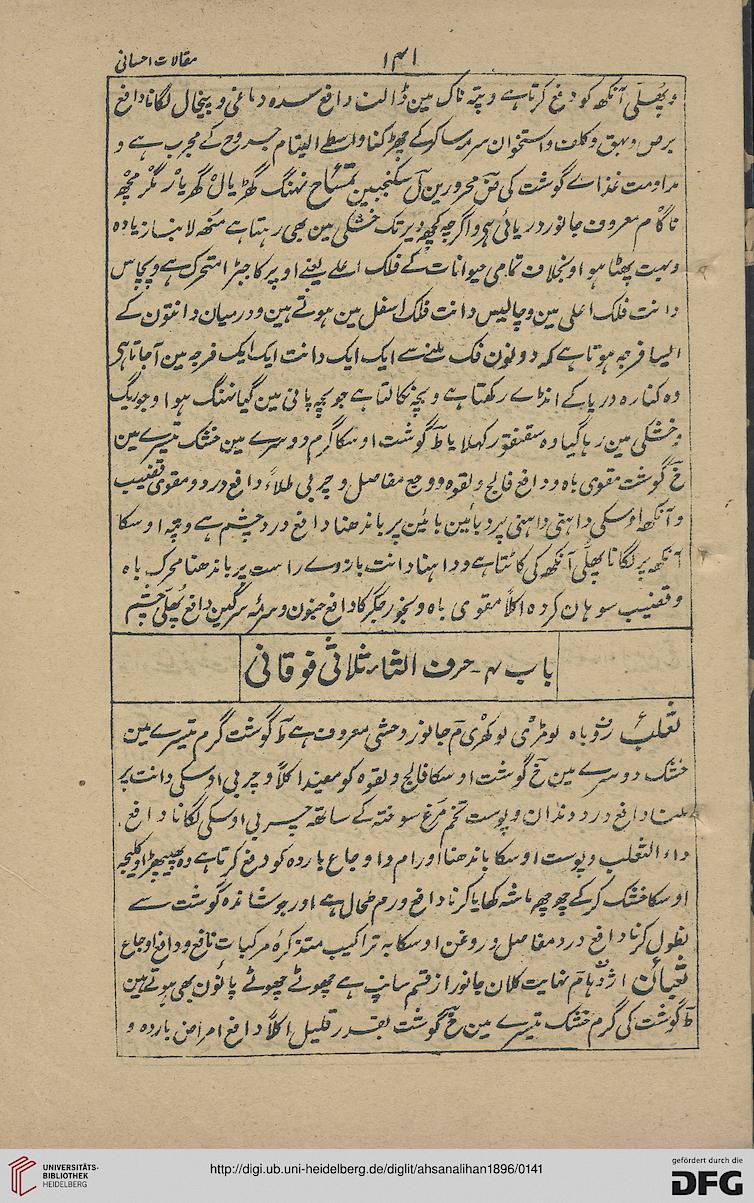 ۱۴۱ مقالات احسانی
و پھلی آنکھ کو دفع کرتا ہے و پتہ ناک مین ڈالنا دافع سدہ دماغی و بیخال لگانا دافع
برص و بہق و کلف و استخوان سرمہ ساکر کے چھڑکنا واسطے التیام جروح کے مجرب ہے و
مداومت غذاے گوشت کی مض محرورین ل سکنجبین تمساح نہنگ گھڑیال گھریار مگر مچھ
ناگا م معروف جانور دریائی ہے و اگرچہ کچھ دیر تک خشکی مین بھی رہتا ہے منھ لانبا زیادہ
و بہت پھٹا ہوا و بخلاف تمامی حیوانات کے فک اعلے یعنے اوپر کا جبڑا متحرک ہے و پچاس
دانت فک اعلی مین و چالیس دانت فک اسفل مین ہوتے ہین و درمیان دانتون کے
ایسا فرجہ ہوتا ہے کہ دونون فک ملنے سے ایک ایک دانت ایک ایک فرجہ مین آجاتا ہے
وہ کنارہ دریا کے انڈے رکھتا ہے و بچہ نکالتا ہے جو بچہ پانی مین گیا نہنگ ہوا و جو ریگ
و خشکی مین رہا گیا وہ سقنقور کہلایا ط گوشت اوسکا گرم دوسرے مین خشک تیسرے مین
خ گوشت مقوی باہ و دافع فالج و لقوہ و وجع مفاصل و چربی طلاءً دافع درد و مقوی قضیب
و آنکھ اوسکی داہنی داہنی پر و بائین بائین پر باندھنا دافع درد چشم ہے و پتہ اوسکا
آنکھ پر لگانا پھلی آنکھ کی کاٹتا ہے و داہنا دانت بازوے راست پر باندھنا محرک باہ
و قضیب سوہان کردہ اکلاً مقوی باہ و بخور جگر کا دافع جنون و سرمہ سرگین دافع پھلی چشم
باب ۴ - حرف الثاء ثلاثی فوقانی
ثعلب روباہ لومڑی لوکھڑی م جانور وحشی معروف ہے ط گوشت گرم تیسرے مین
خشک دوسرے مین خ گوشت اوسکا فالج و لقوہ کو مفید اکلاً و چربی اوسکی دانت پر
ملنا دافع درد دندان و پوست تخم مرغ سوختہ کے ساتھ چربی اوسکی لگانا دافع
داء الثعلب و پوست اوسکا باندھنا اورام و اوجاع باردہ کو دفع کرتا ہے وہ پھیپھڑا و کلیجہ
اوسکا خشک کر کے چھ چھ ماشہ کھایا کرنا دافع ورم طحال ہے اور جوشاندہ گوشت سے
نطول کرنا دافع درد مفاصل و روغن اوسکا بہ تراکیب متذکرہ مرکبات نافع و دافع اوجاع
ثعبان اژدہا م نہایت کلان جانور از قسم سانپ ہے چھوٹے چھوٹے پانون بھی ہوتے ہین
ط گوشت کی گرم خشک تیسرے مین خ گوشت بقدر قلیل اکلاً دافع امراض باردہ و
UNIVERSITÄTS-
BIBLIOTHEK
HEIDELBERG
http://digi.ub.uni-heidelberg.de/diglit/ahsanalihan1896/0141
gefördert durch die
DFG